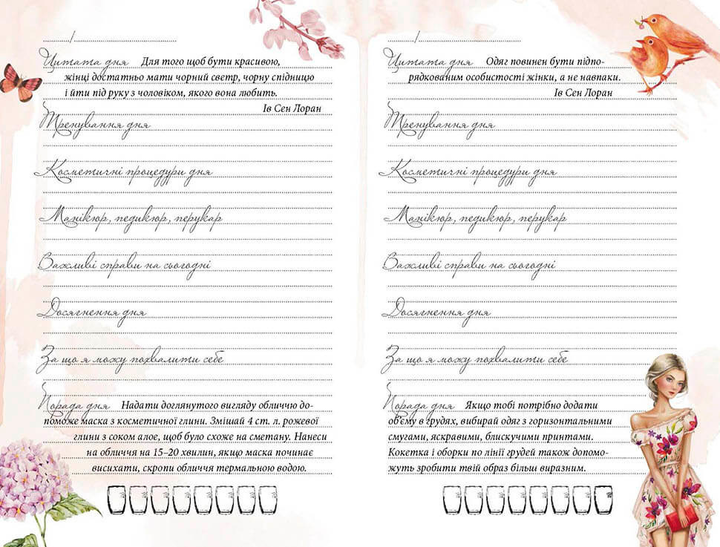 Цитата дня Для того щоб бути красивою,
жінці достатньо мати чорний светр, чорну спідницю
і йти під руку з чоловіком, якого вона любить.
Ів Сен Лоран
Тренування дня
Косметичні процедури дня
Манікюр, педикюр, перукар
Важливі справи на сьогодні
Досягнення дня
За що я можу похвалити себе
Порада дня Надати доглянутого вигляду обличчю до-
поможе маска з косметичної глини. Змішай 4 ст. л. рожевої
глини з соком алое, щоб було схоже на сметану. Нанеси
на обличчя на 15–20 хвилин, якщо маска починає
висихати, скропи обличчя термальною водою.
Цитата дня Одяг повинен бути підпо-
рядкованим особистості жінки, а не навпаки.
Ів Сен Лоран
Тренування дня
Косметичні процедури дня
Манікюр, педикюр, перукар
Важливі справи на сьогодні
Досягнення дня
За що я можу похвалити себе
Порада дня Якщо тобі потрібно додати
об'єму в грудях, вибирай одяг з горизонтальними
смугами, яскравими, блискучими принтами.
Кокетка і оборки по лінії грудей також допомо-
жуть зробити твій образ більш виразним.